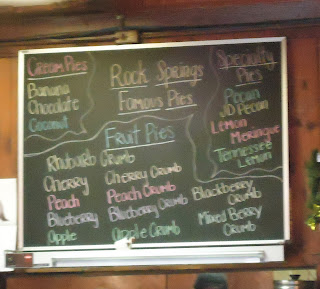 Cream Pies
Banana
Chocolate
Coconut
Rock Springs
Famous Pies
Specialty
Pies
Pecan
JD Pecan
Lemon
Meringue
Tennessee
Lemon
Fruit Pies
Rhubarb Crumb
Cherry
Cherry Crumb
Peach
Peach Crumb
Blackberry
Crumb
Blueberry
Blueberry Crumb
Mixed Berry
Crumb
Apple
Apple Crumb